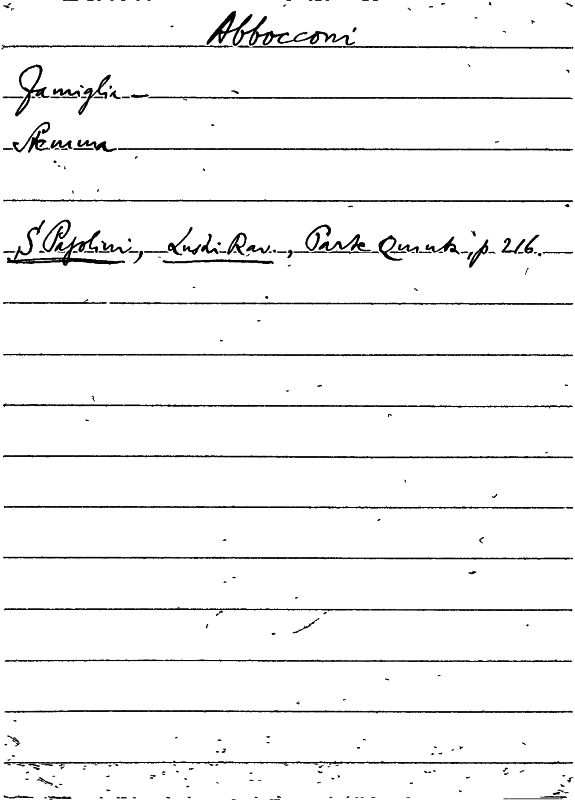 Abbocconi
Famiglia —
Stemma
S. Pasolini, Lust. di Rav., Parte Quinta, p 216.